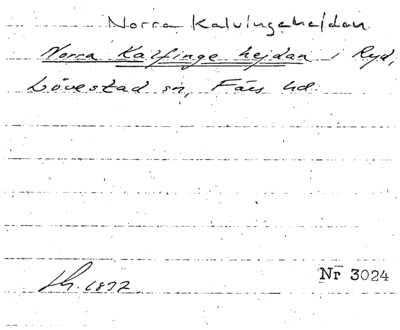 Norra Kalvingehejdan.
Norra Kalfinge hejdan i Ryd,
Lövestad sn, Färs hd.
Nr 3024
1872